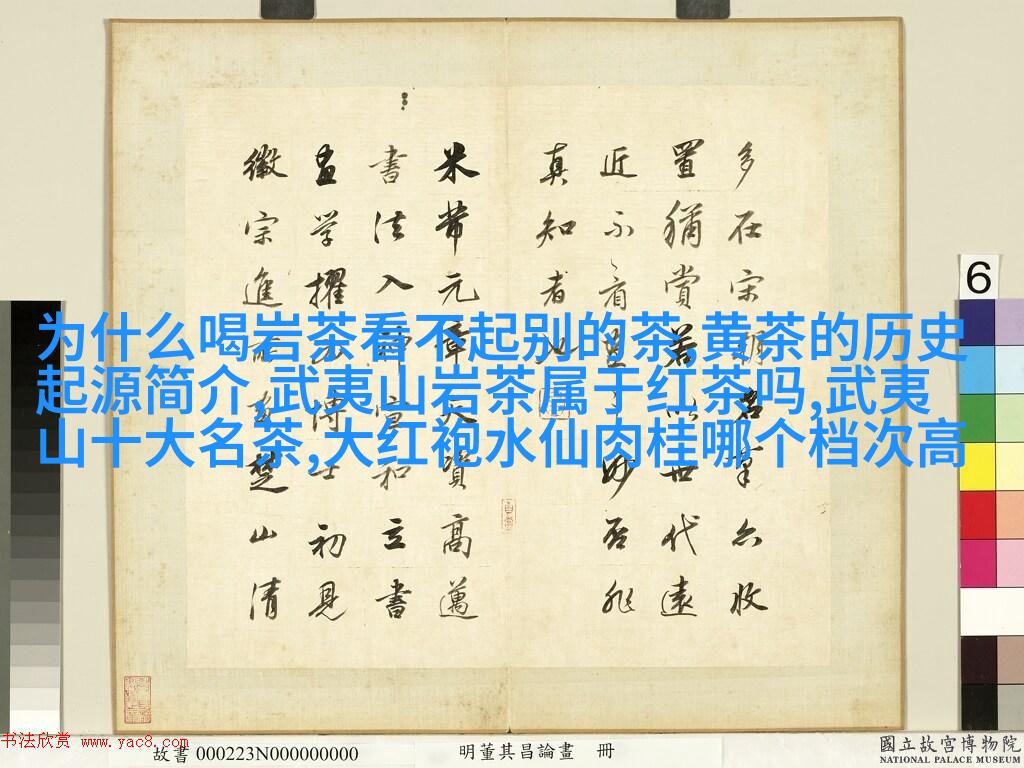 为什么喝岩茶看不起别的茶,黄茶的历史
起源简介,武夷山岩茶属于红茶吗,武夷
山十大名茶,大红袍水仙肉桂哪个档次高
多在宋朝名筆亦收
置猶賞若以世代遠
近不看畫之妙否非
真知者也
米芾元章天資高邁
書法入神宣和立書
畫学擢为博士初見
徽宗進所畫楚山清
6
书法欣赏 www.yac8.com
故書 000223N000000000
明董其昌論畫 冊
國立故宮博物院
NATIONAL PALACE MUSEUM